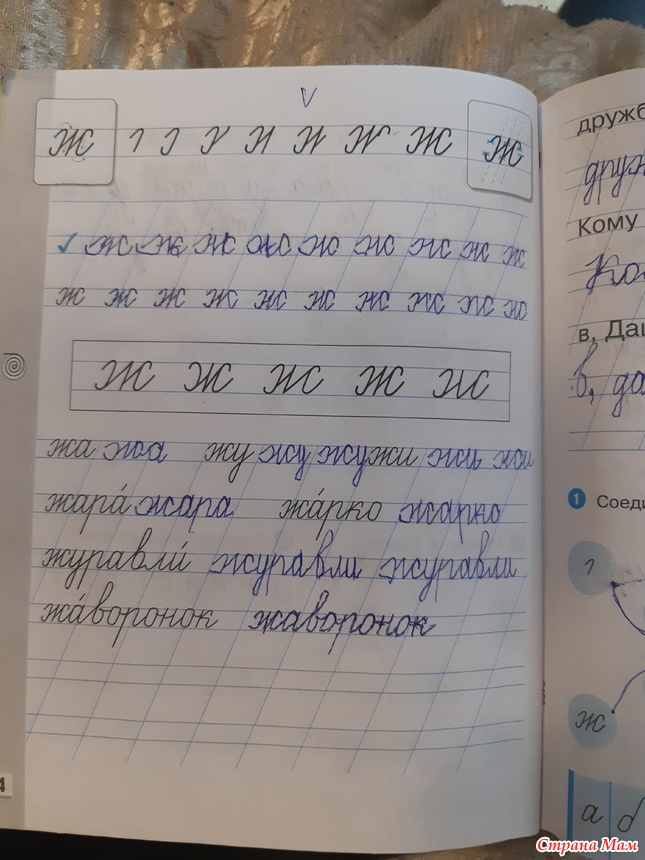 V
ж ж ж
ж ж ж ж ж ж ж ж ж
ж ж ж ж ж ж ж ж ж ж
ж ж ж ж ж
жа жа жу жу жу жи жи жи
жара́ жара жа́рко жарко
журавли́ журавли журавли
жа́воронок жаворонок
4
дружб
друж
Кому
Ко
в, Даш
в, да
1 Соеди
ж
а б
Страна Мам